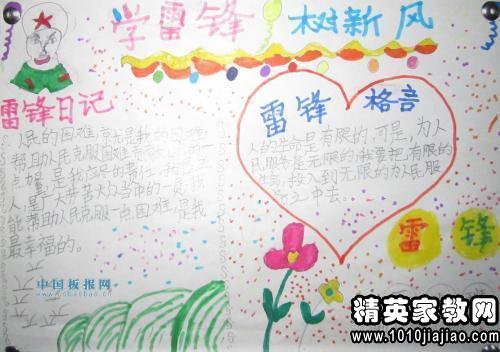 学雷锋 树新风
雷锋日记
人民的困难,
帮助人民克服困难
点 是我应尽的责任,
人,是广大劳苦大众当中的一员,我
能帮助人民克服一点困难,是我
最幸福的。
雷锋 格言
人的生命是有限的,可是,为人
民服务是无限的,我要把有限的
生命,投入到无限的为人民服
务之中去。
雷 锋
中国板报网
精英家教网
www.1010jiajiao.com